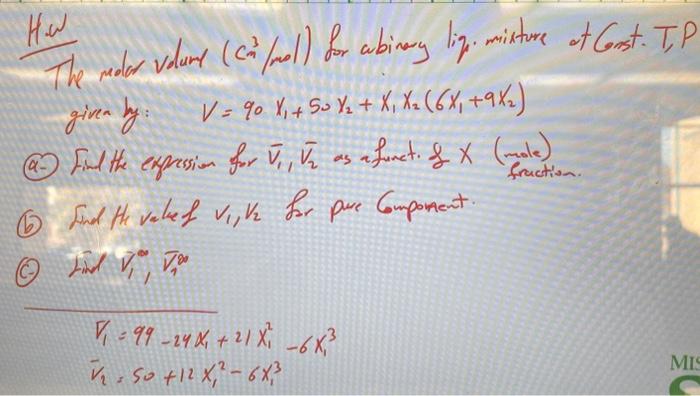 H.W
The molar volume (cm³/mol) for a binary liq. mixture at Const. T, P
given by: V = 90 X₁ + 50 X₂ + X₁ X₂ (6X₁ + 9X₂)
(a-) Find the expression for V̄₁, V̄₂ as a funct. of X (mole)
fraction.
(b) Find the value of V₁, V₂ for pure Component.
(c) Find V̄₁^∞, V̄₂^∞
V̄₁ = 99 - 24 X₁ + 21 X₁² - 6 X₁³
V̄₂ = 50 + 12 X₁² - 6 X₁³
MIS